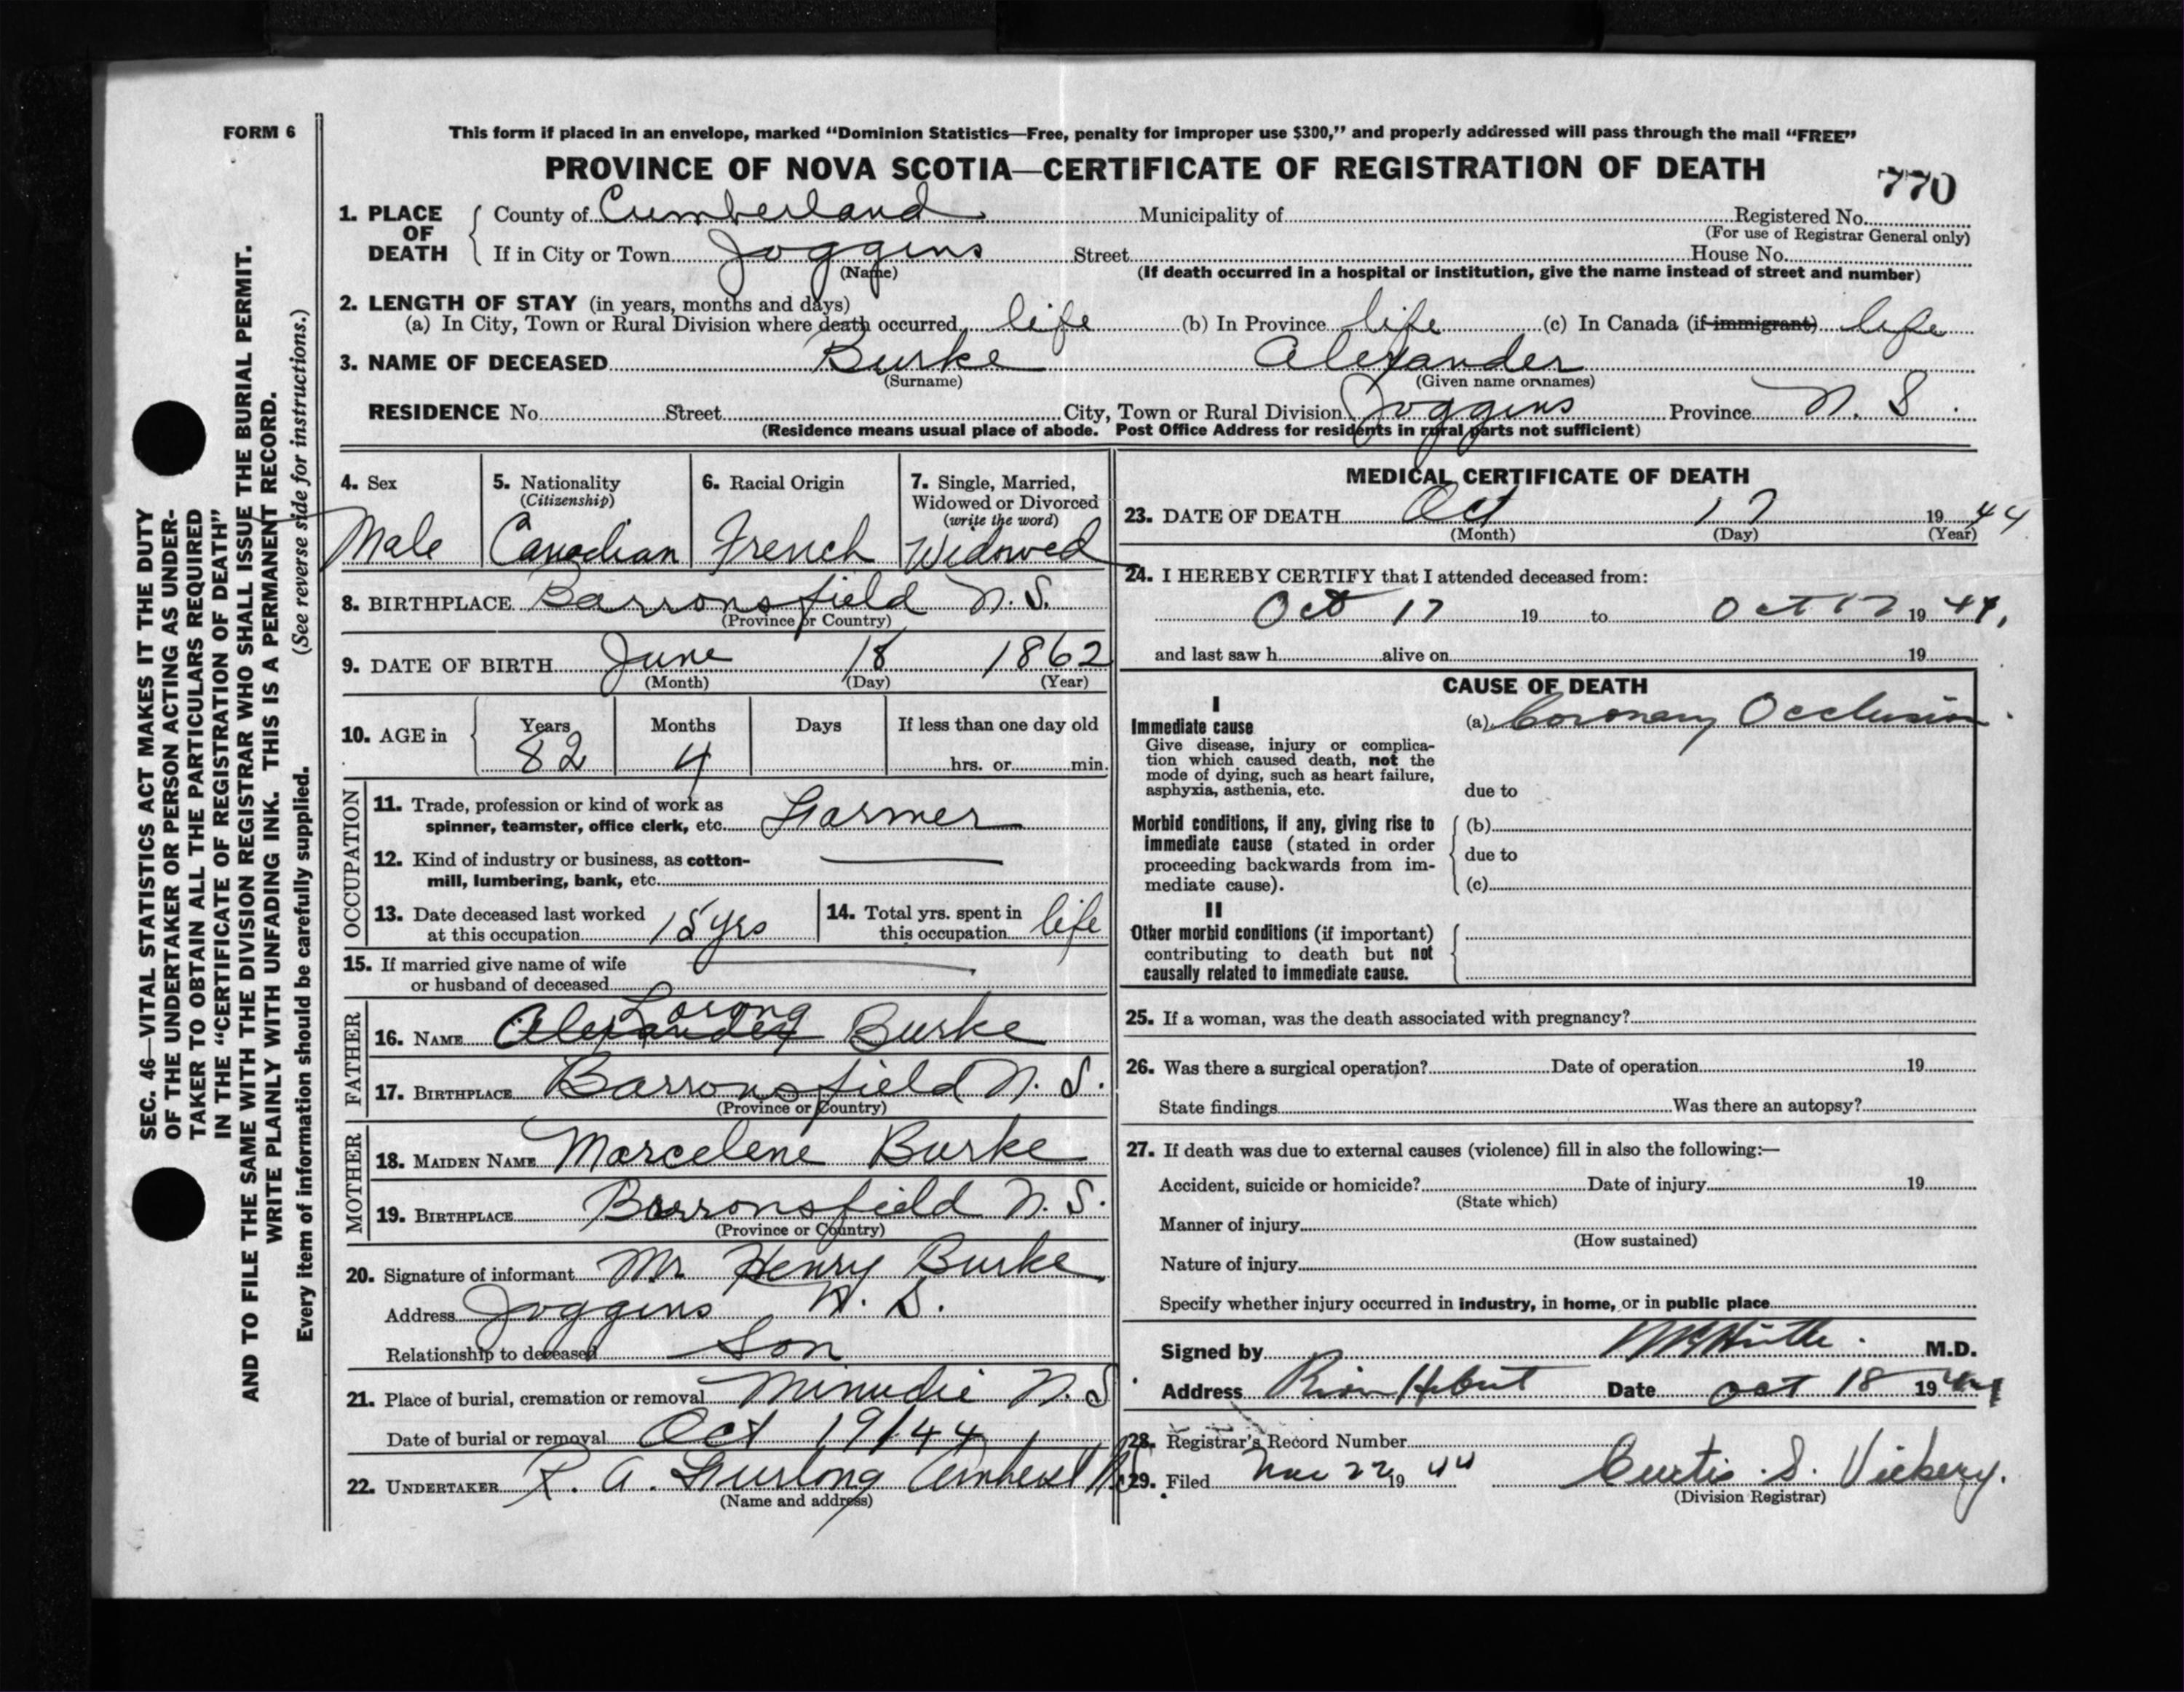 FORM 6
This form if placed in an envelope, marked “Dominion Statistics—Free, penalty for improper use $300,” and properly addressed will pass through the mail “FREE”
PROVINCE OF NOVA SCOTIA—CERTIFICATE OF REGISTRATION OF DEATH
770
1. PLACE OF DEATH
County of Cumberland Municipality of Registered No.
(For use of Registrar General only)
If in City or Town Joggins Street House No.
(Name) (If death occurred in a hospital or institution, give the name instead of street and number)
2. LENGTH OF STAY (in years, months and days)
(a) In City, Town or Rural Division where death occurred life (b) In Province life (c) In Canada (if immigrant) life
3. NAME OF DECEASED Burke Alexander
(Surname) (Given name or names)
RESIDENCE No. Street City, Town or Rural Division Joggins Province N. S.
(Residence means usual place of abode. Post Office Address for residents in rural parts not sufficient)
4. Sex
Male
5. Nationality
(Citizenship)
Canadian
6. Racial Origin
French
7. Single, Married,
Widowed or Divorced
(write the word)
Widowed
8. BIRTHPLACE Barronsfield N. S.
(Province or Country)
9. DATE OF BIRTH June 18 1862
(Month) (Day) (Year)
10. AGE in Years Months Days If less than one day old
82 4 hrs. or min.
OCCUPATION
11. Trade, profession or kind of work as
spinner, teamster, office clerk, etc. Farmer
12. Kind of industry or business, as cotton-
mill, lumbering, bank, etc.
13. Date deceased last worked
at this occupation 15 yrs
14. Total yrs. spent in
this occupation life
15. If married give name of wife
or husband of deceased
FATHER
Lorong
16. NAME Alexander Burke
17. BIRTHPLACE Barronsfield N. S.
(Province or Country)
MOTHER
18. MAIDEN NAME Marcelene Burke
19. BIRTHPLACE Barronsfield N. S.
(Province or Country)
20. Signature of informant Mr Henry Burke
Address Joggins N. S.
Relationship to deceased Son
21. Place of burial, cremation or removal Minudie N. S
Date of burial or removal Oct 19/44
22. UNDERTAKER R. A. Furlong Amherst N.S
(Name and address)
MEDICAL CERTIFICATE OF DEATH
23. DATE OF DEATH Oct 17 19 44
(Month) (Day) (Year)
24. I HEREBY CERTIFY that I attended deceased from:
Oct 17 19 to Oct 17 19 44.
and last saw h alive on 19
CAUSE OF DEATH
I
Immediate cause
Give disease, injury or complica-
tion which caused death, not the
mode of dying, such as heart failure,
asphyxia, asthenia, etc.
(a) Coronary Occlusion.
due to
Morbid conditions, if any, giving rise to
immediate cause (stated in order
proceeding backwards from im-
mediate cause).
(b)
due to
(c)
II
Other morbid conditions (if important)
contributing to death but not
causally related to immediate cause.
25. If a woman, was the death associated with pregnancy?
26. Was there a surgical operation? Date of operation 19
State findings Was there an autopsy?
27. If death was due to external causes (violence) fill in also the following:—
Accident, suicide or homicide? Date of injury 19
(State which)
Manner of injury
(How sustained)
Nature of injury
Specify whether injury occurred in industry, in home, or in public place
Signed by M.D.
Address River Hebert Date Oct 18 19 44
28. Registrar's Record Number
29. Filed 22 19 44 Curtis S. Vickery.
(Division Registrar)
SEC. 46—VITAL STATISTICS ACT MAKES IT THE DUTY
OF THE UNDERTAKER OR PERSON ACTING AS UNDER-
TAKER TO OBTAIN ALL THE PARTICULARS REQUIRED
IN THE “CERTIFICATE OF REGISTRATION OF DEATH”
AND TO FILE THE SAME WITH THE DIVISION REGISTRAR WHO SHALL ISSUE THE BURIAL PERMIT.
WRITE PLAINLY WITH UNFADING INK. THIS IS A PERMANENT RECORD.
Every item of information should be carefully supplied. (See reverse side for instructions.)